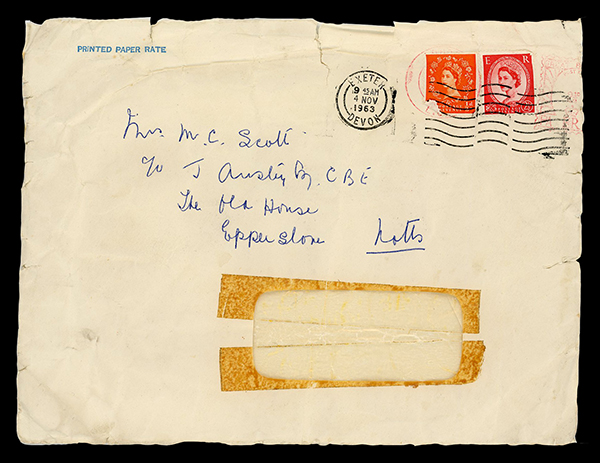 PRINTED PAPER RATE
EXETER
9 15 AM
4 NOV
1963
DEVON
E R
Mrs. M. C. Scott
c/o J Ansley Esq. CBE
The Old House
Epperstone Notts